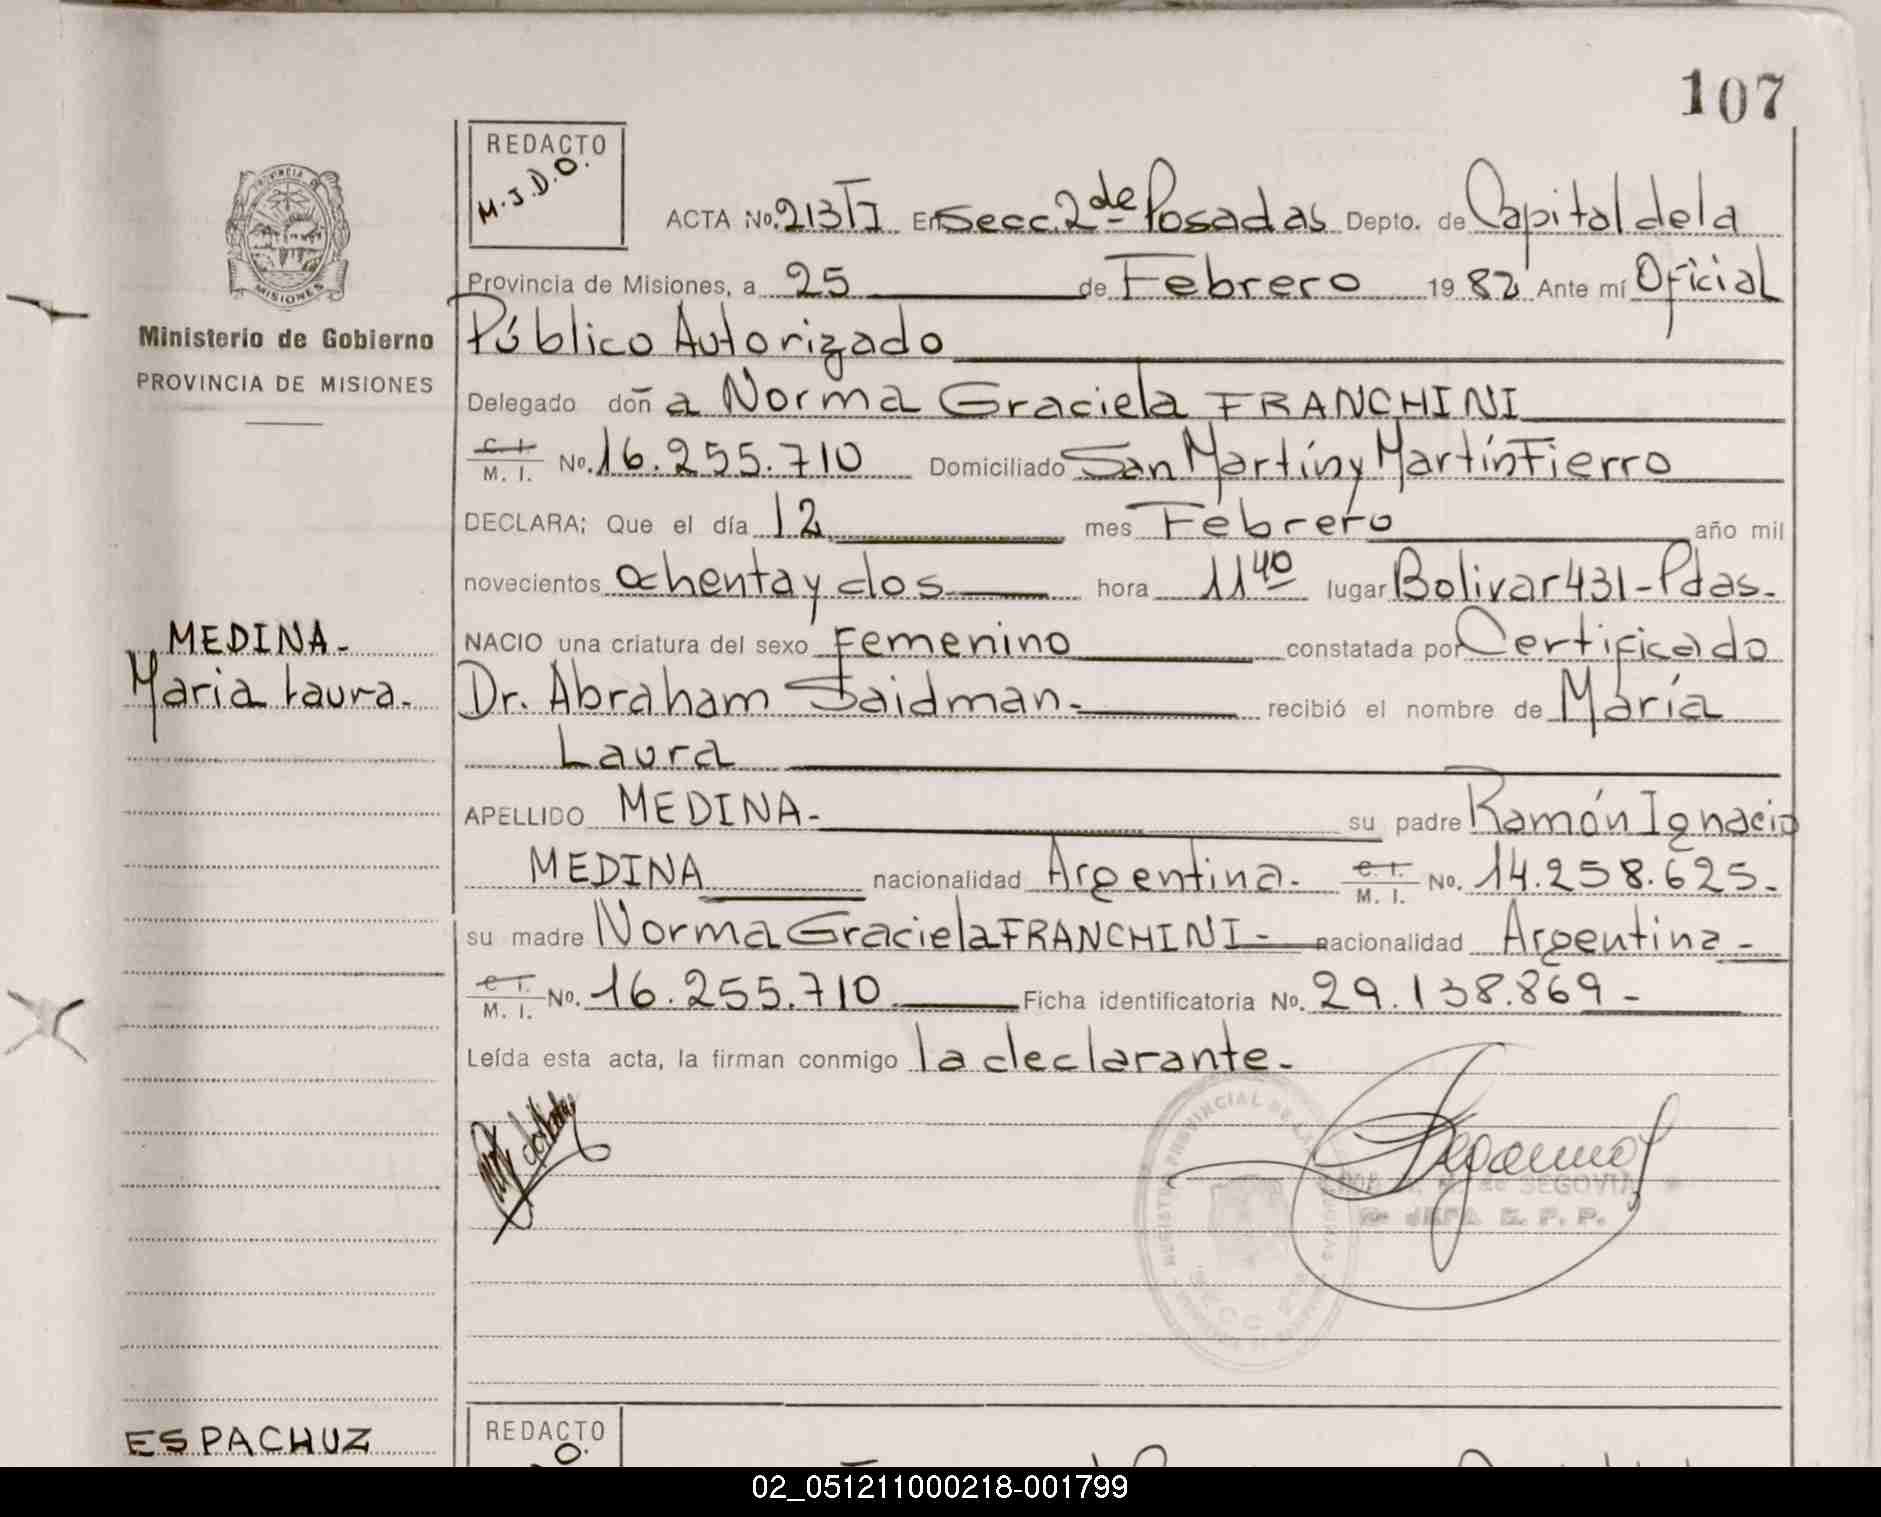 107
REDACTO
M.J.D.O.
PROVINCIA DE
MISIONES
Ministerio de Gobierno
PROVINCIA DE MISIONES
ACTA No. 213 TI En Secc. 2 de Posadas Depto. de Capital de la
Provincia de Misiones, a 25 de Febrero 1982 Ante mí Oficial
Público Autorizado
Delegado doña Norma Graciela FRANCHINI
C. I. / M. I. No. 16.255.710 Domiciliado San Martín y Martín Fierro
DECLARA; Que el día 12 mes Febrero año mil
novecientos ochenta y dos hora 11 40 lugar Bolivar 431 - Pdas.
MEDINA -
Maria Laura.
NACIO una criatura del sexo Femenino constatada por Certificado
Dr. Abraham Saidman. recibió el nombre de María
Laura
APELLIDO MEDINA - su padre Ramón Ignacio
MEDINA nacionalidad Argentina. C. I. / M. I. No. 14.258.625.
su madre Norma Graciela FRANCHINI - nacionalidad Argentina -
C. I. / M. I. No. 16.255.710 Ficha identificatoria No. 29.138.869 -
Leída esta acta, la firman conmigo la declarante.
de SEGOVIA
JEFA E. P. P.
ESPACHUZ
REDACTO
O.
02_051211000218-001799